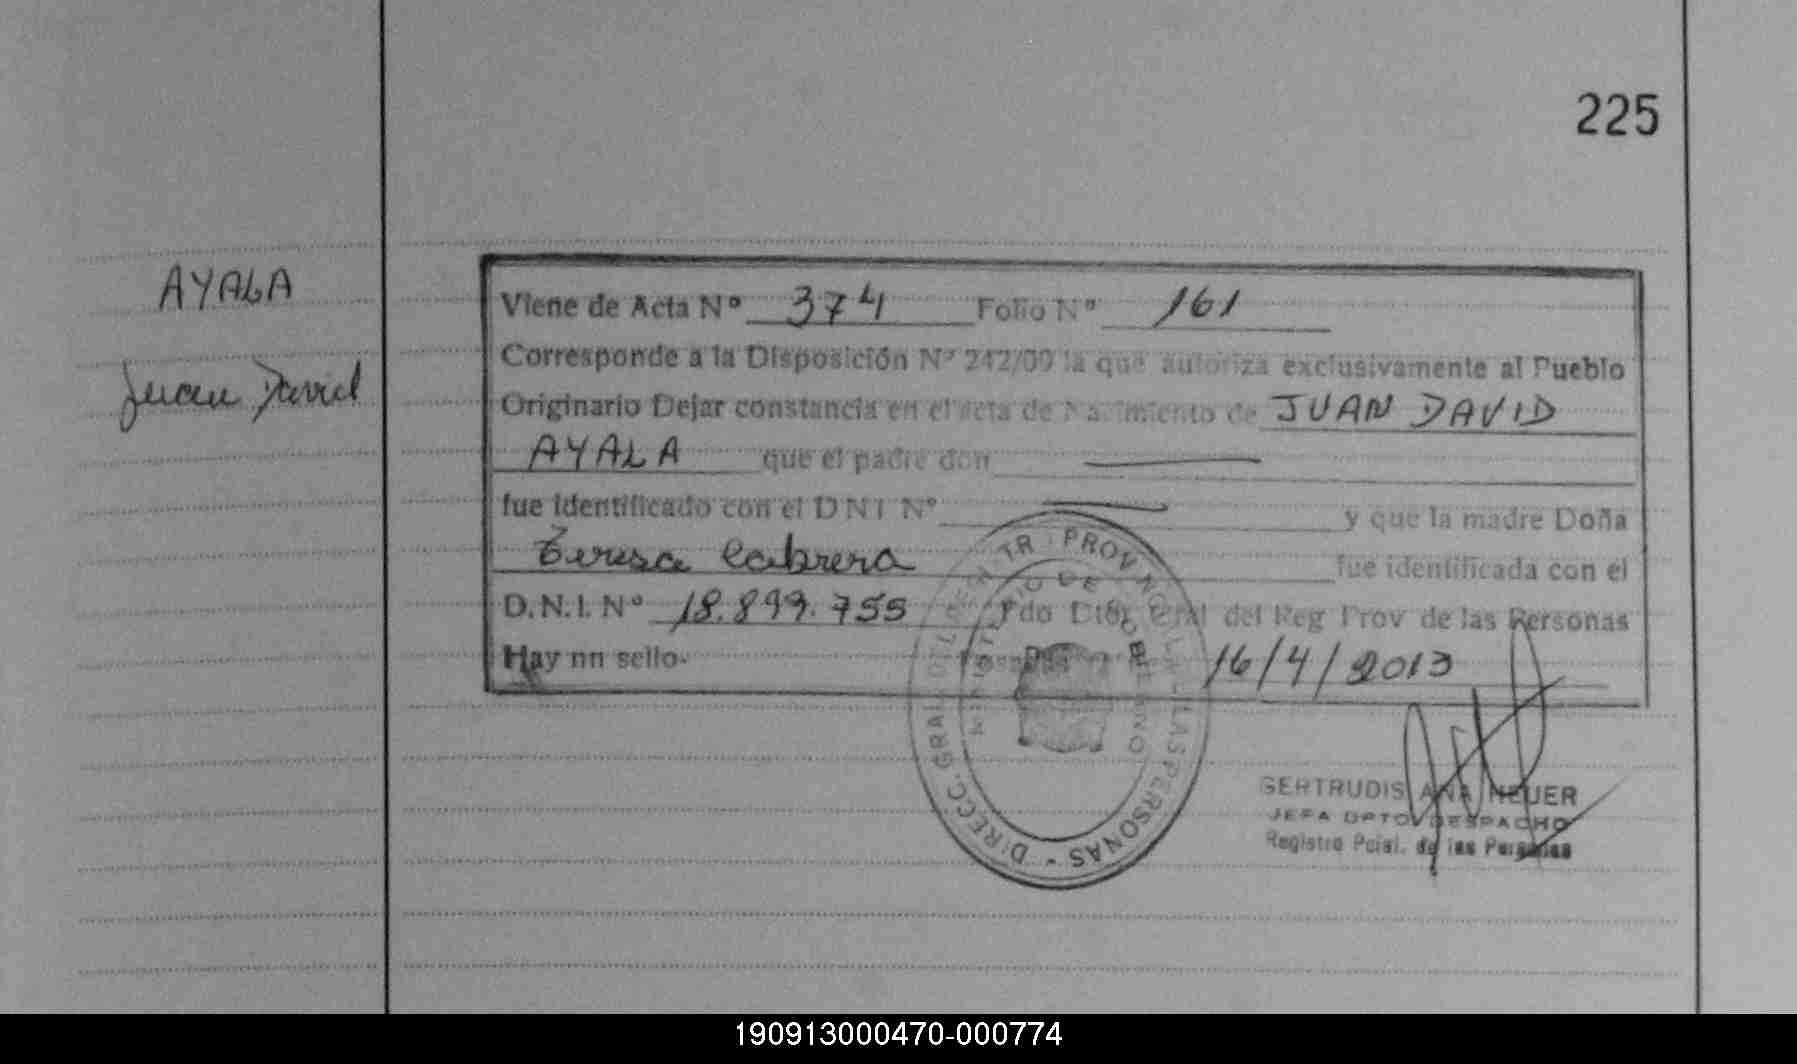 225
AYALA
Juan David
Viene de Acta Nº 374 Folio Nº 161
Corresponde a la Disposición Nº 242/09 la que autoriza exclusivamente al Pueblo
Originario Dejar constancia en el acta de Nacimiento de JUAN DAVID
AYALA que el padre don
fue identificado con el D N I Nº y que la madre Doña
Teresa Cabrera fue identificada con el
D.N.I. Nº 18.899.755 Fdo Dtor Gral del Reg Prov de las Personas
Hay nn sello. Posadas 16/4/2013
DIRECC. GRAL. DEL REGISTR PROV DE LAS PERSONAS
MINISTERIO DE GOBIERNO
GERTRUDIS ANA NEUER
JEFA DPTO DESPACHO
Registro Pcial. de las Personas
190913000470-000774